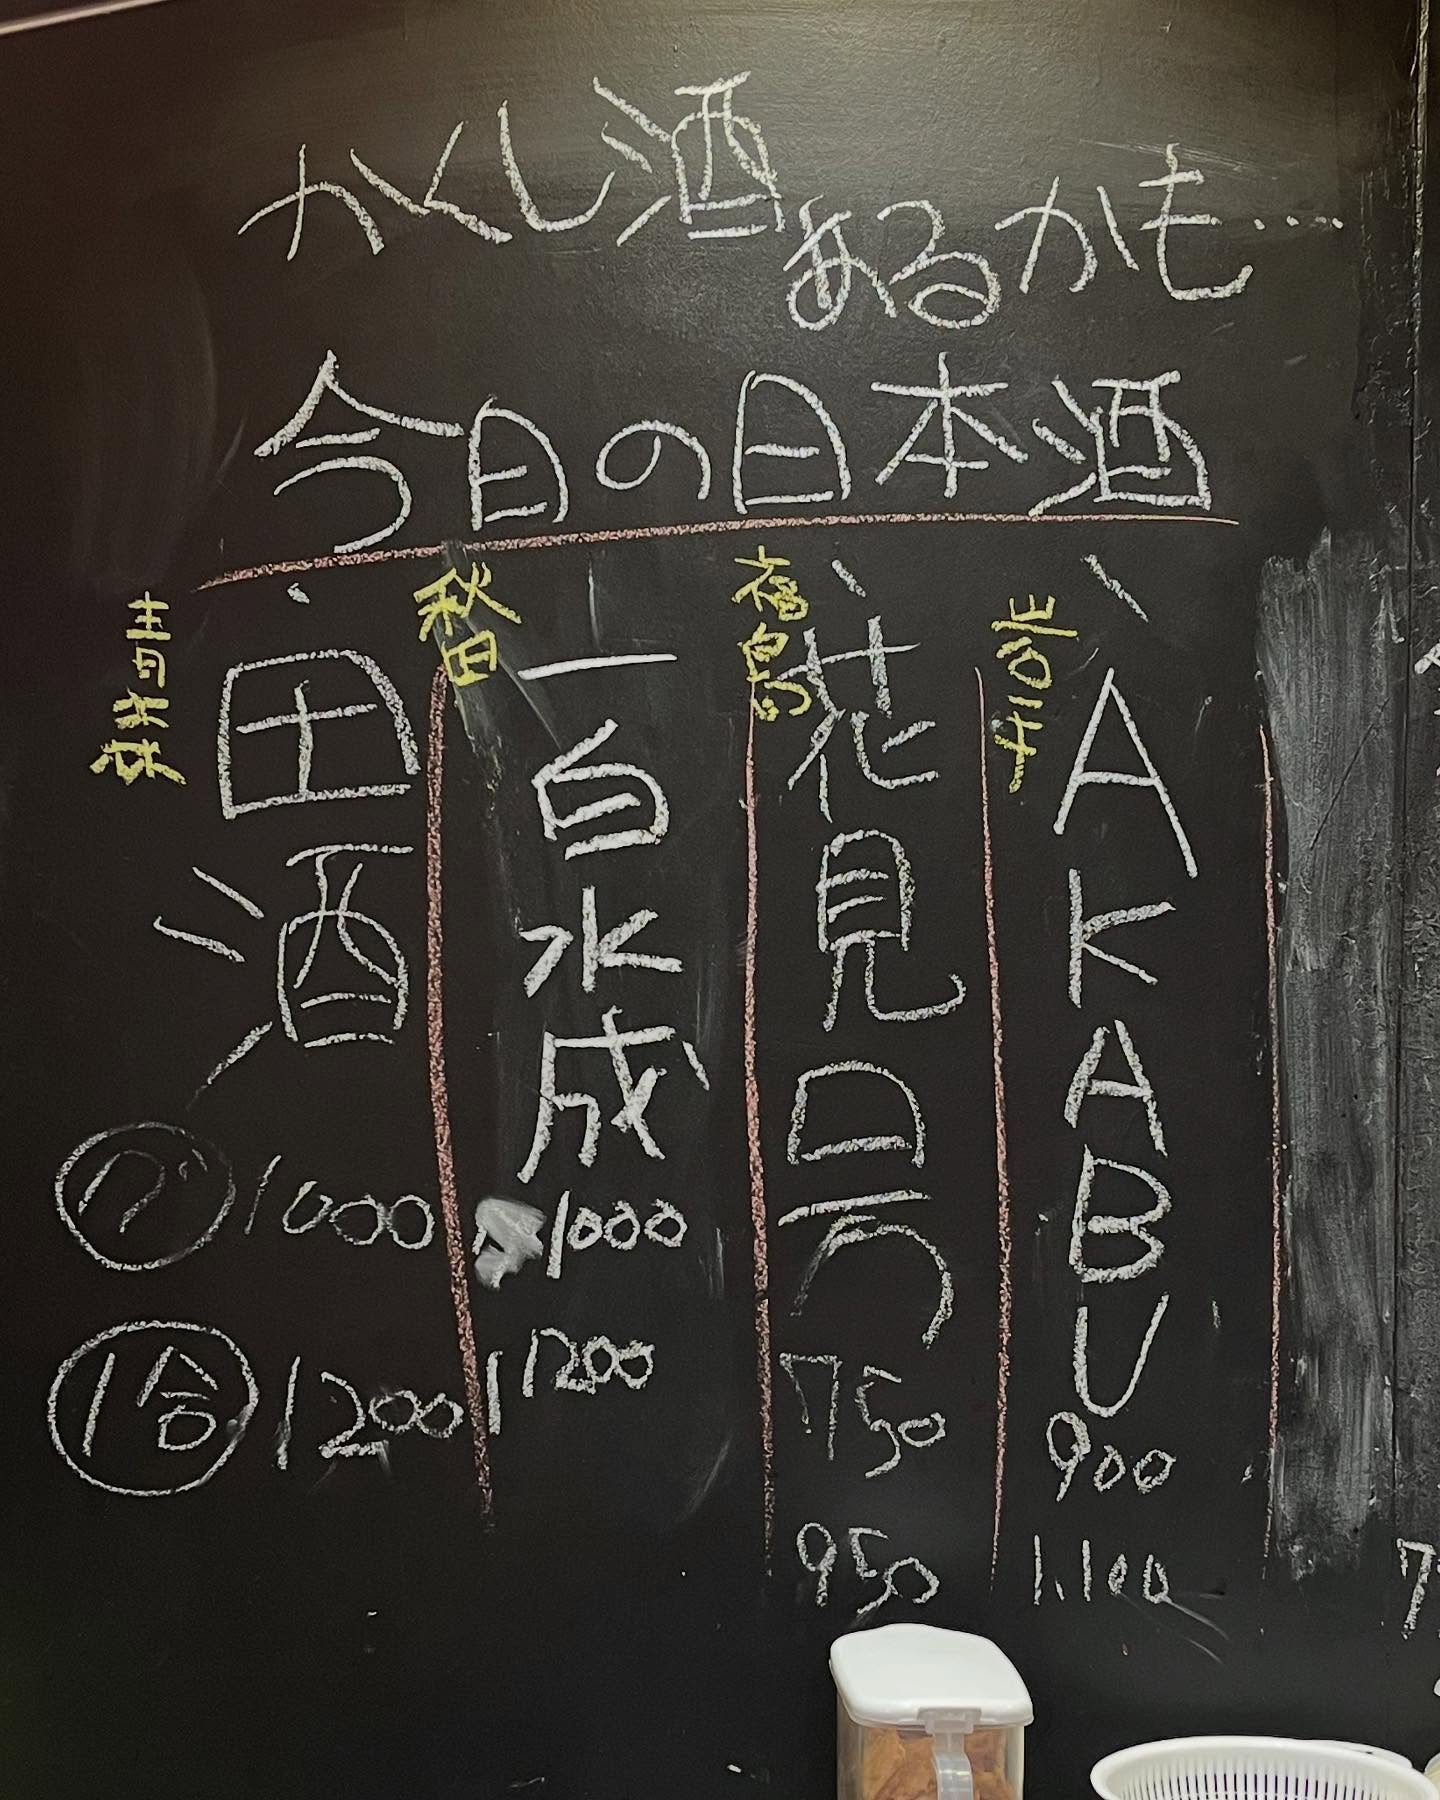 かくし酒
あるかも…
今日の日本酒
岩手
AKABU
900
1.100
福島
花見ロ万
750
950
秋田
一白水成
1000
1200
青森
田酒
グ 1000
1合 1200